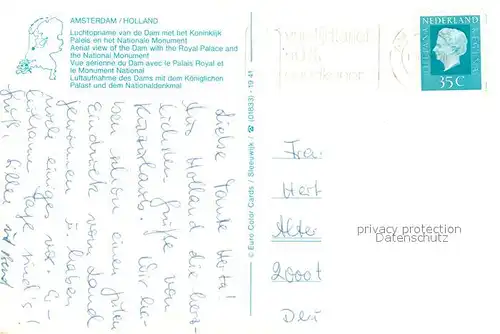 AMSTERDAM / HOLLAND
Luchtopname van de Dam met het Koninklijk
Paleis en het Nationale Monument
Aerial view of the Dam with the Royal Palace and
the National Monument
Vue aérienne du Dam avec le Palais Royal et
le Monument National
Luftaufnahme des Dams mit dem Königlichen
Palast und dem Nationaldenkmal
Liebe Tante Herta!
Aus Holland die herz-
lichsten Grüße von
Wir ha-
ben schon einen guten
Eindruck vom Land
gewonnen u. haben
noch einiges vor. Er-
holsame Tage sind's!
Gruß,
© Euro Color Cards / Bleeuwijk / ☎ (01833) - 19 41
NEDERLAND
35 C
Frau
Hert
2000
Deu
privacy protection
Datenschutz